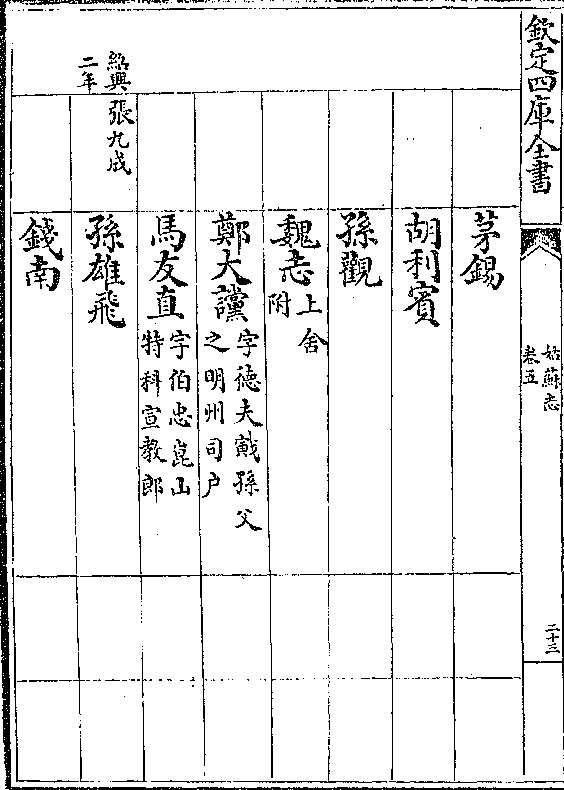 欽定四庫全書
姑蘇志
卷五
二十三
茅錫
胡利賓
孫觀
魏志
上舍
附
鄭大讜
字徳夫戩孫父
之明州司户
馬友直
字伯忠崑山
特科宣教郎
紹興
二年
張九成
孫雄飛
錢南